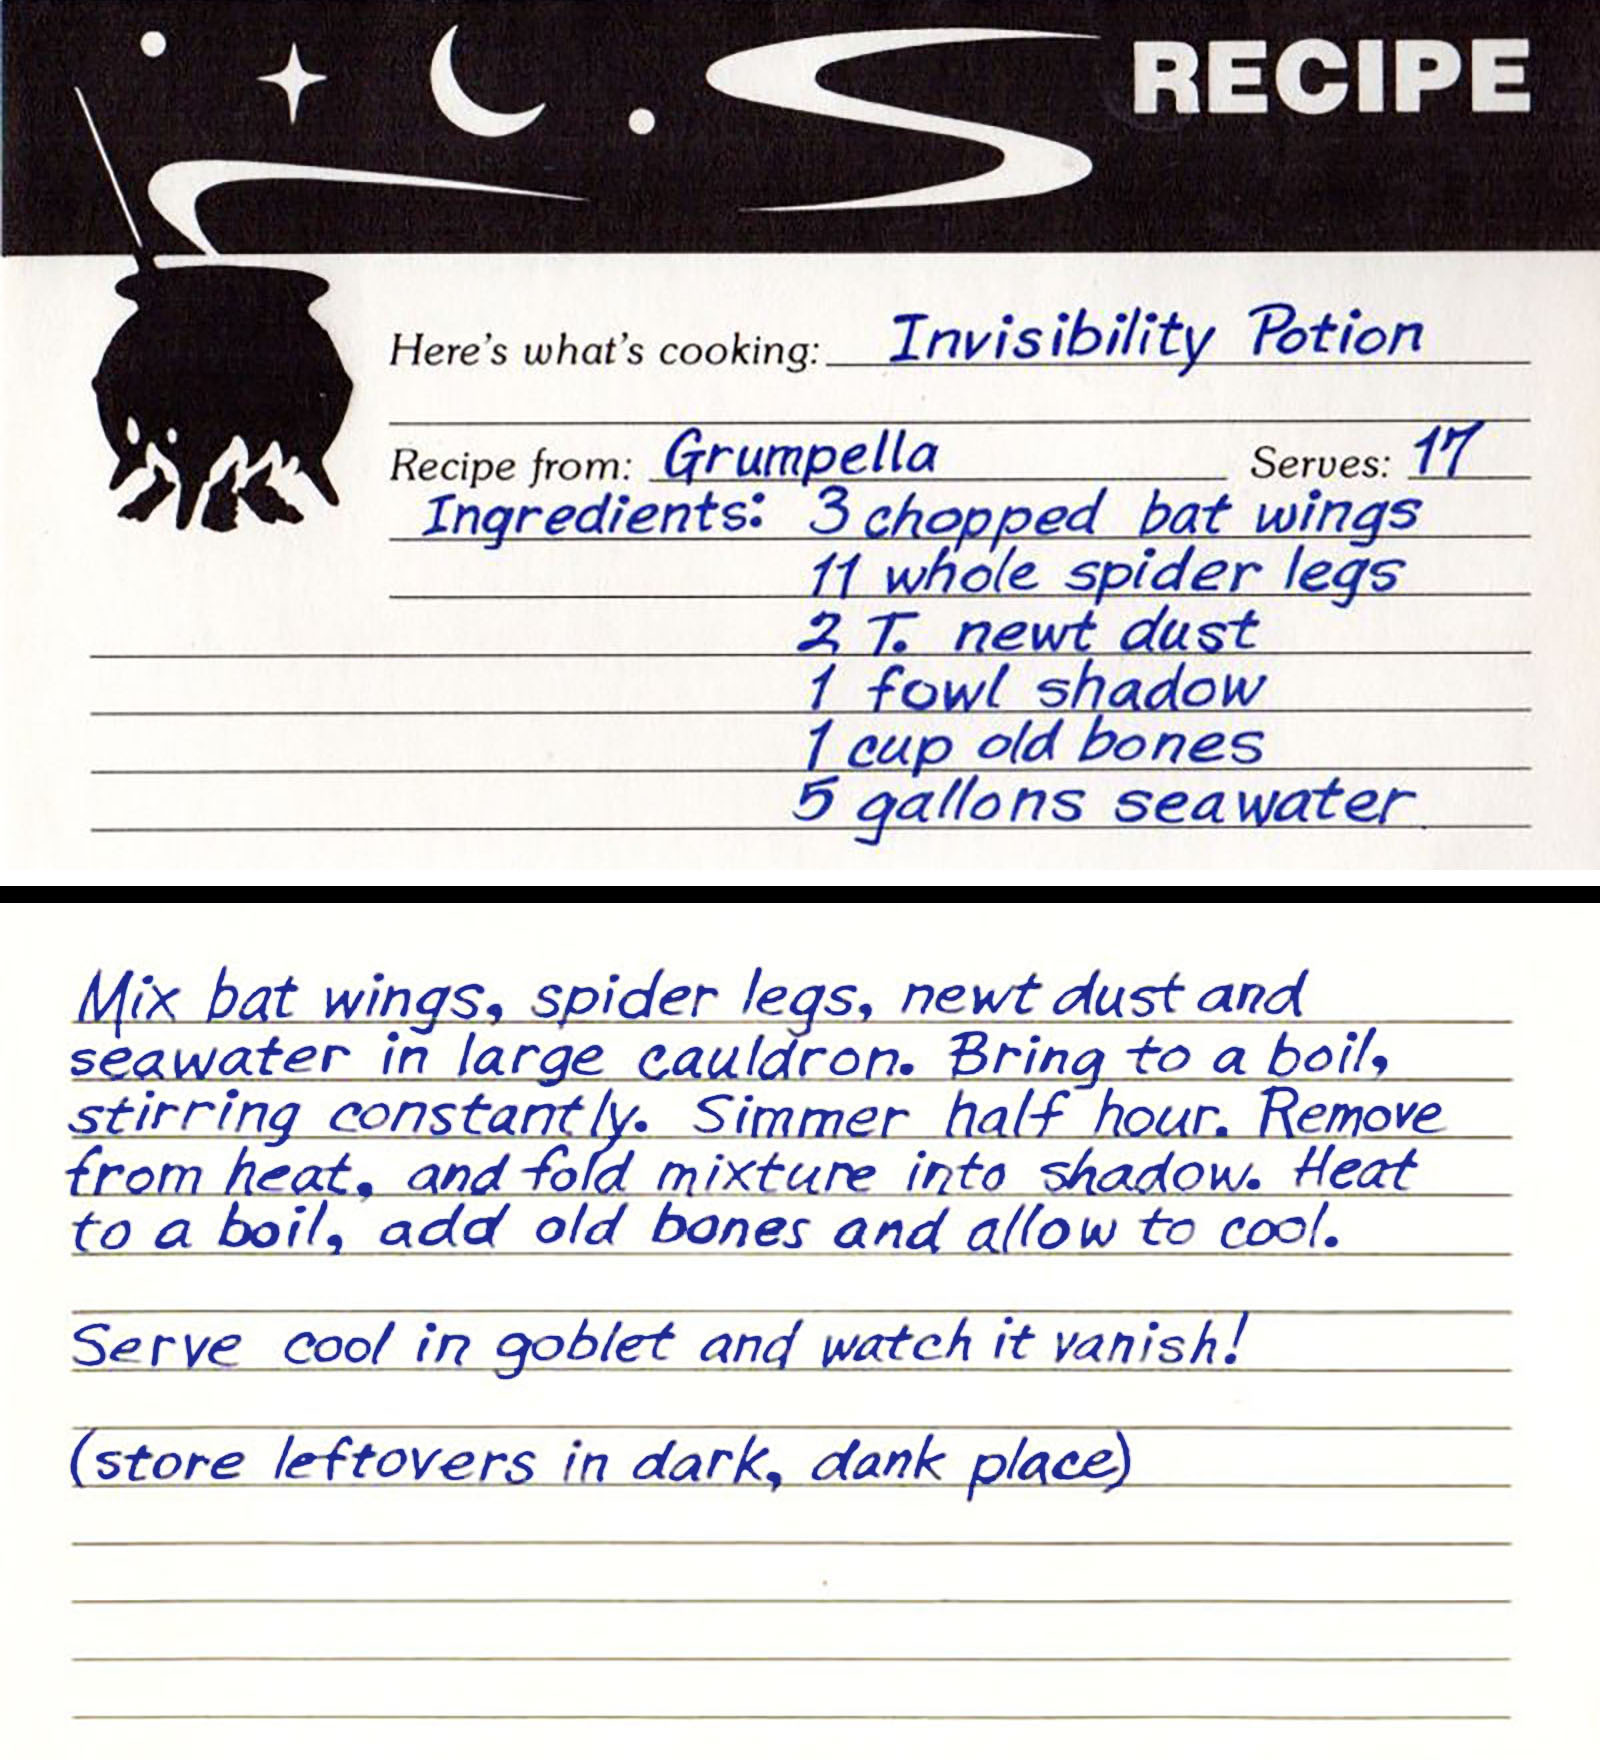 RECIPE
Here's what's cooking: Invisibility Potion
Recipe from: Grumpella Serves: 17
Ingredients: 3 chopped bat wings
11 whole spider legs
2 T. newt dust
1 fowl shadow
1 cup old bones
5 gallons seawater
Mix bat wings, spider legs, newt dust and
seawater in large cauldron. Bring to a boil,
stirring constantly. Simmer half hour. Remove
from heat, and fold mixture into shadow. Heat
to a boil, add old bones and allow to cool.
Serve cool in goblet and watch it vanish!
(store leftovers in dark, dank place)